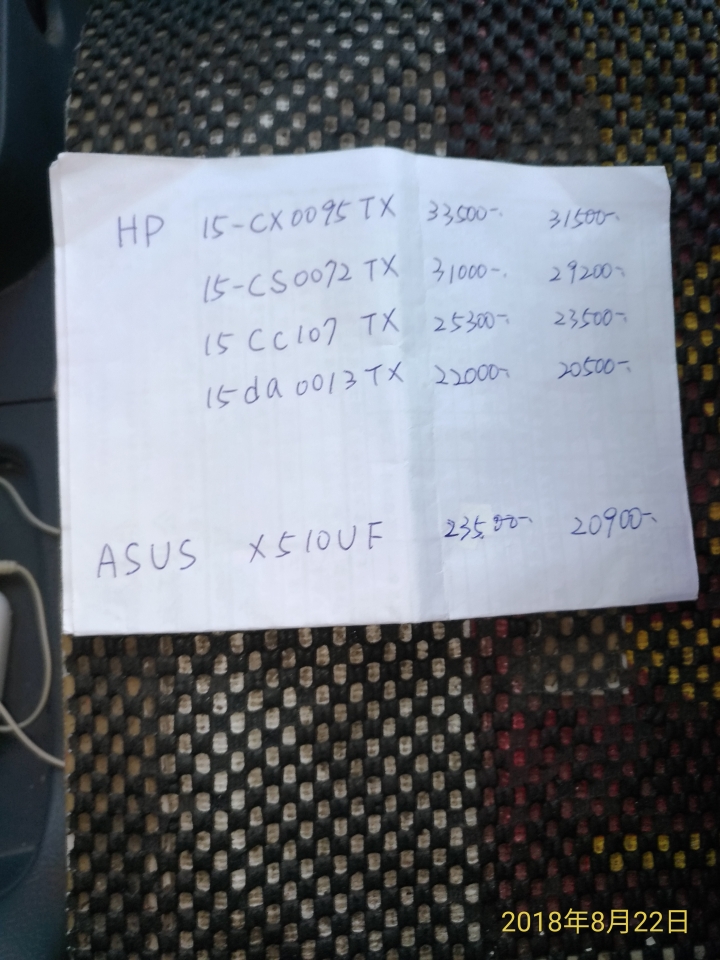 HP 15-CX0095TX 33500-. 31500-.
15-CS0072TX 31000-. 29200-.
15CC107 TX 25300-. 23500-.
15da0013TX 22000-. 20500-.
ASUS X510UF 23500-. 20900-.
2018年8月22日